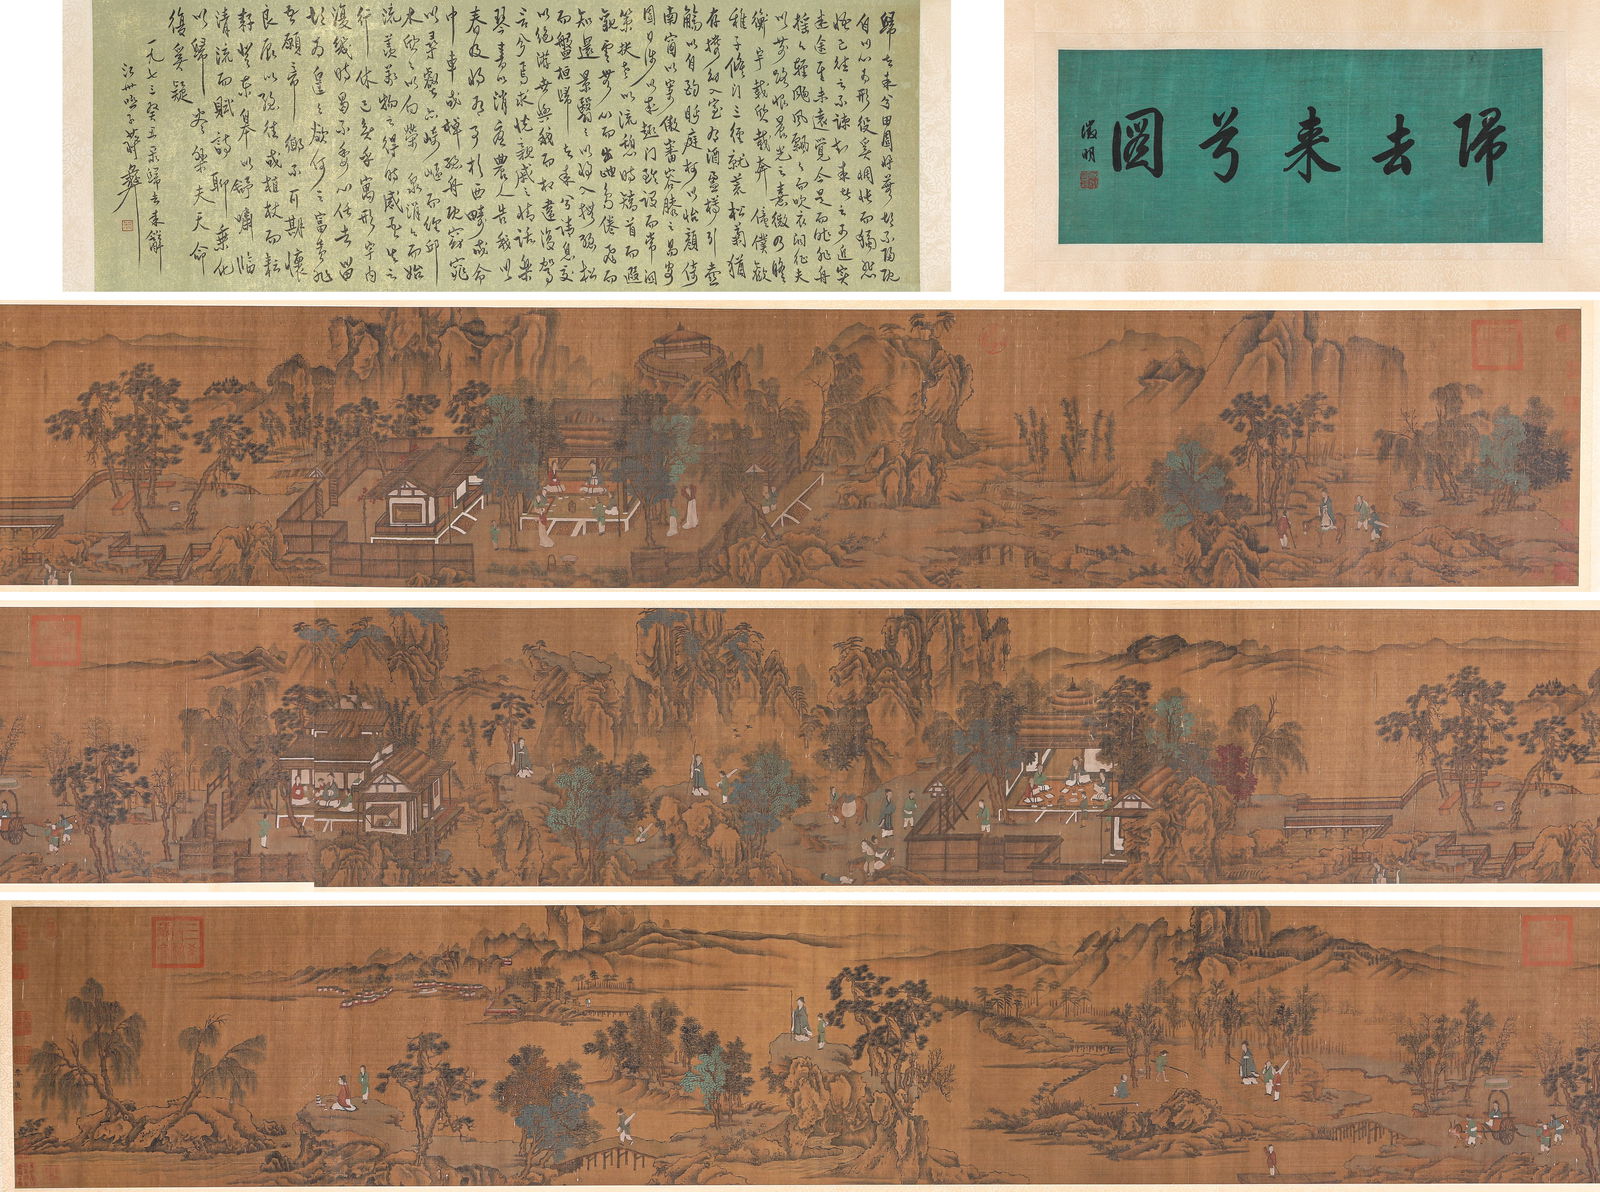 歸去来兮田園將蕪胡不歸既
自以心為形役奚惆悵而獨悲
悟已往之不諫知来者之可追實
迷途其未遠覺今是而昨非舟
摇々輕颺風飄々而吹衣问征夫
以前路恨晨光之熹微乃瞻
衡宇載欣載奔僮僕歡
稚子候门三徑就荒松菊猶
存攜幼入室有酒盈樽引壺
觴以自酌眄庭柯以怡顏倚
南窗以寄傲審容膝之易安
園日涉以成趣门雖設而常関
策扶老以流憩時矯首而遐
觀雲無心而出岫鳥倦飛而
知還景翳々以將入撫孤松
而盤桓歸去来兮請息交
以絶游世與我而相違復駕
言兮焉求悦親戚之情話樂
琴書以消憂農人告我以
春及將有事於西疇或命
巾車或棹孤舟既窈窕
以尋壑亦崎嶇而經邱
木欣欣以向榮泉涓涓而始
流羨萬物之得時感吾生之
行休已矣乎寓形宇内
復幾時曷不委心任去留
胡為皇々欲何之富貴非
吾願帝鄉不可期懷
良辰以孤往或植杖而耘
耔登東皋以舒嘯臨
清流而賦詩聊乘化
以歸盡樂夫天命
復奚疑
一九七三癸丑录歸去来辭
帰去来兮圖
徵明